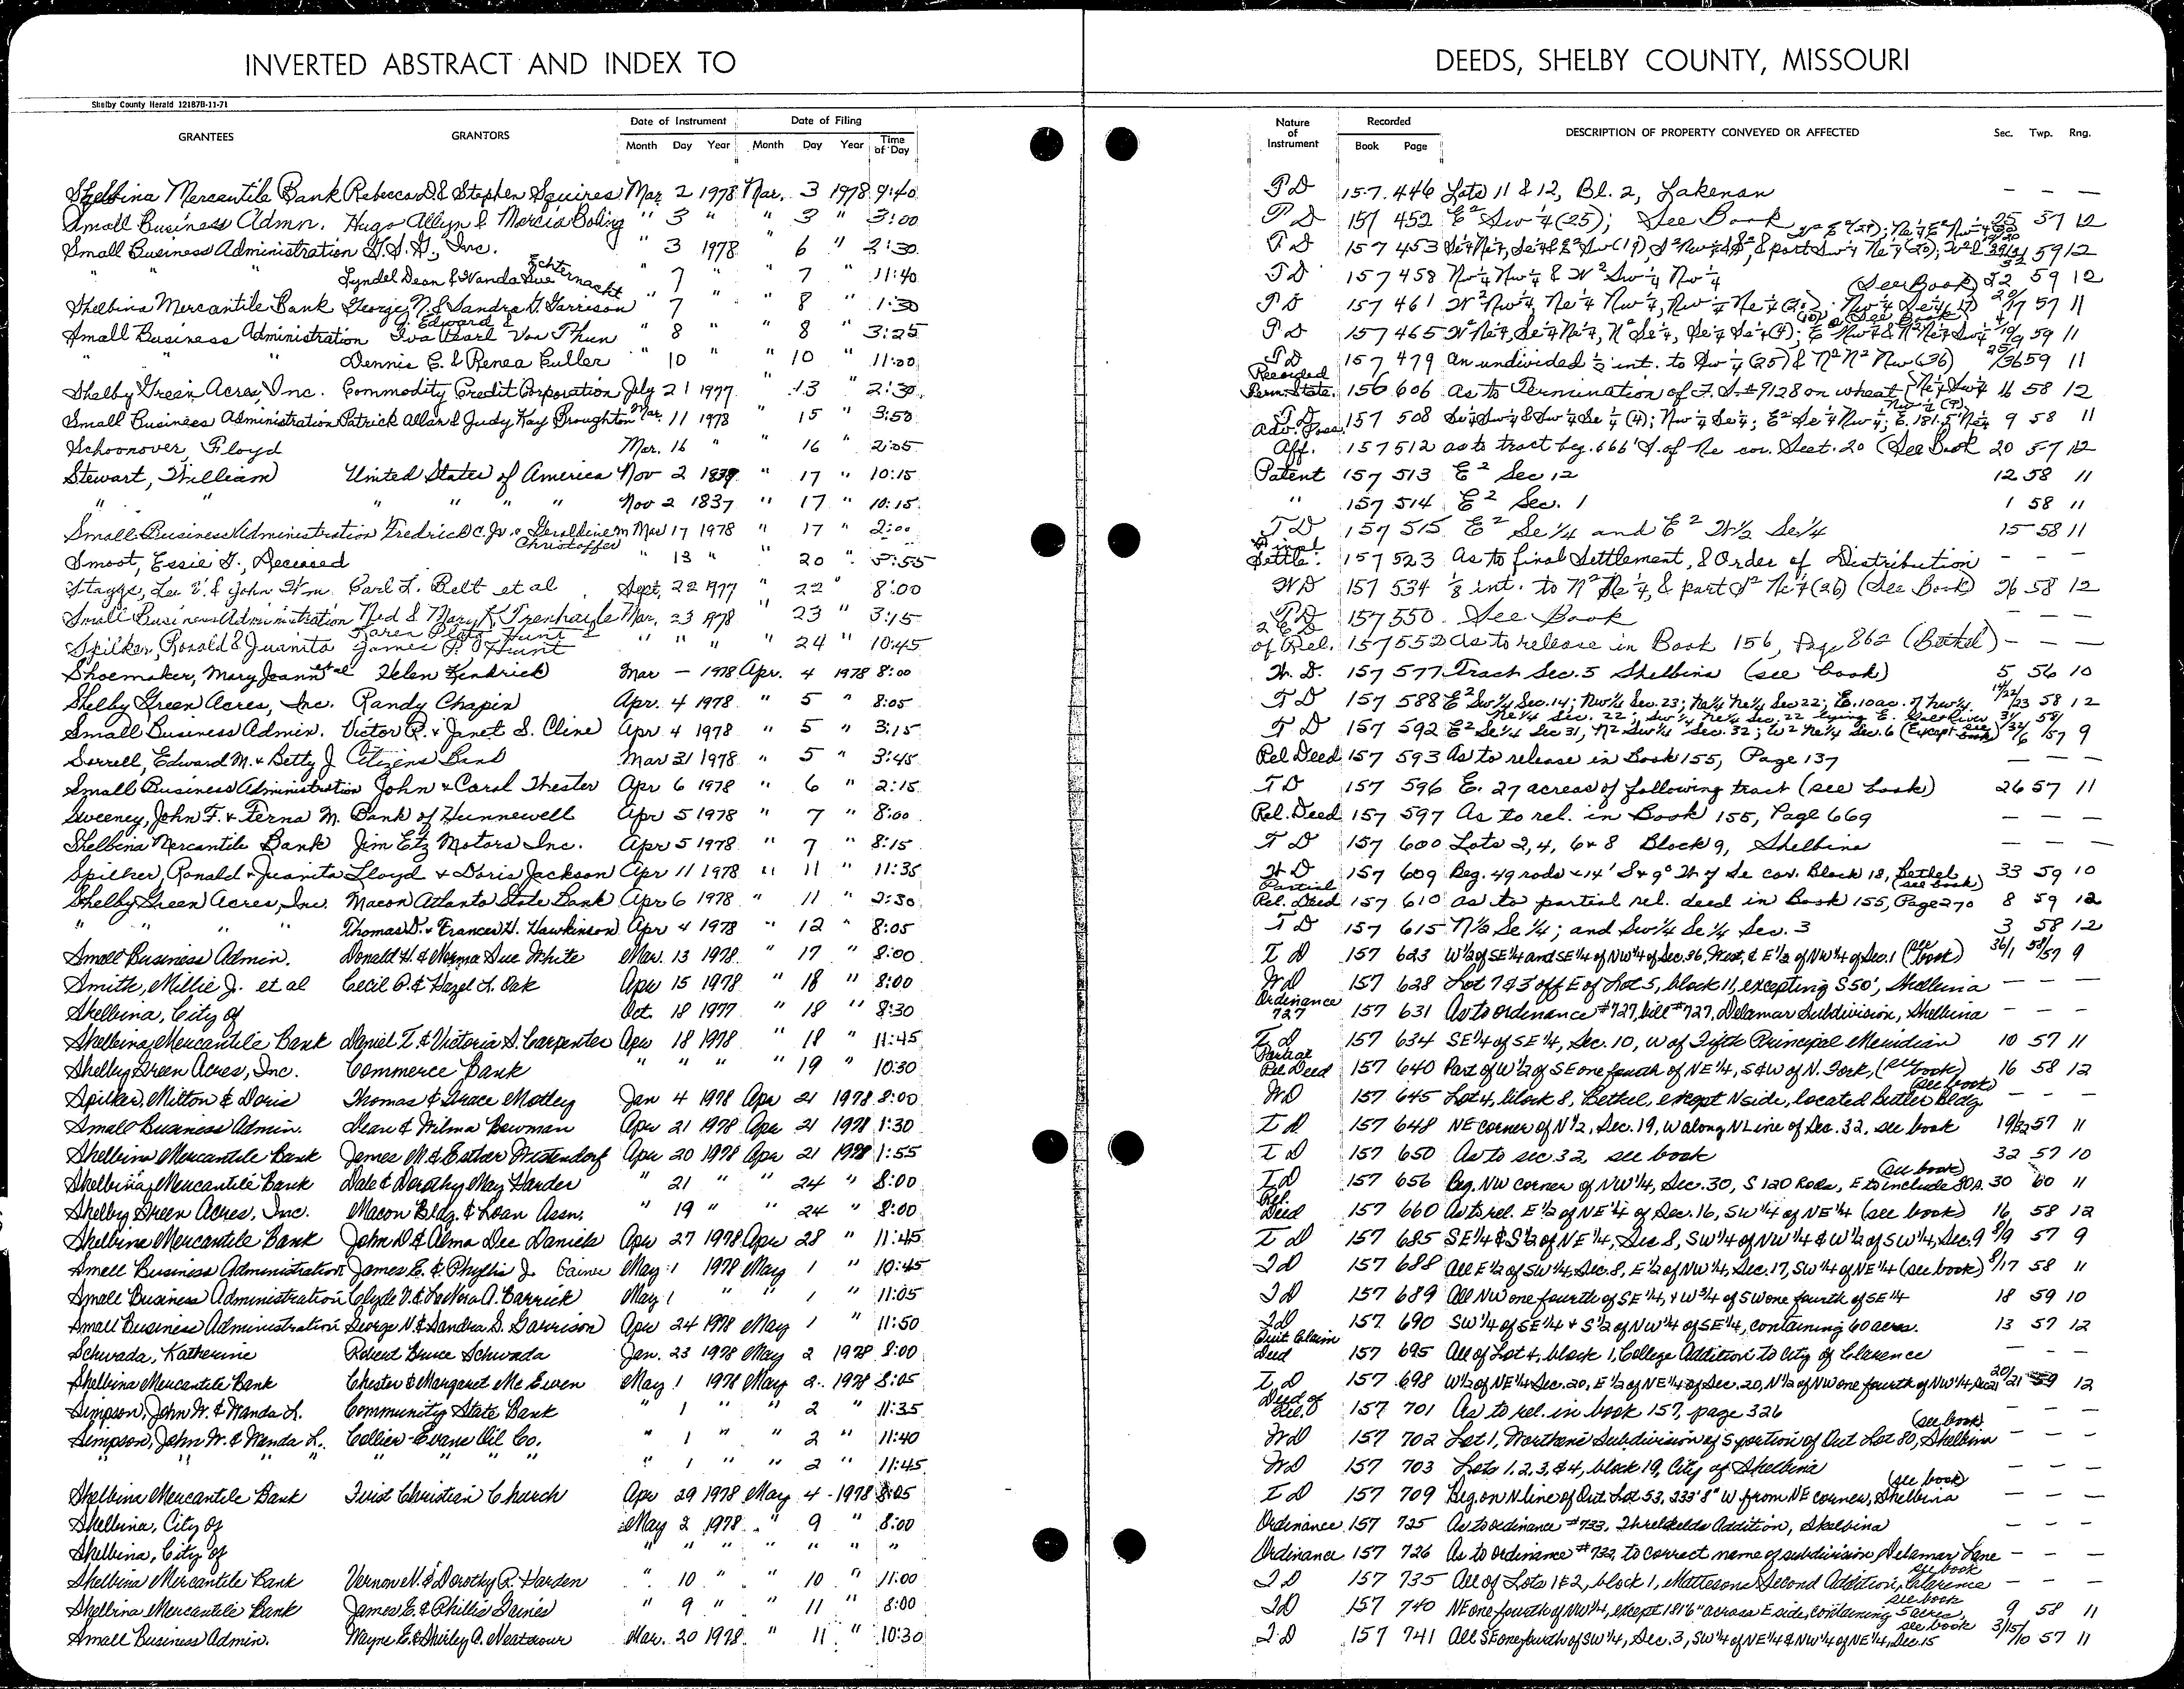 INVERTED ABSTRACT AND INDEX TO DEEDS, SHELBY COUNTY, MISSOURI
Shelby County Herald 12187B-11-71
GRANTEES GRANTORS Date of Instrument Month Day Year Date of Filing Month Day Year Time of Day Nature of Instrument Recorded Book Page DESCRIPTION OF PROPERTY CONVEYED OR AFFECTED Sec. Twp. Rng.
Shelbina Mercantile Bank Rebecca D. & Stephen Squires Mar. 2 1978 Mar. 3 1978 9:40 T D 157 446 Lots 11 & 12, Bl. 2, Lakenan — — —
Small Business Admn. Hugo Allyn & Marcia Boling " 3 " " 3 " 3:00 T D 157 452 E² Sw ¼ (25); See Book 25 57 12
Small Business Administration Inc. " 3 1978 " 6 " 2:30 T D 157 453 59 12
" " Lyndel Dean & Wanda Sue Echternacht " 7 " " 7 " 11:40 T D 157 458 Nw ¼ Nw ¼ & W² Sw ¼ Nw ¼ (See Book) 59 12
Shelbina Mercantile Bank George N. & Sandra G. Garrison " 7 " " 8 " 1:30 T D 157 461 W² Nw¼, Ne ¼ Nw ¼, (See Book) 57 11
Small Business Administration J. Edward & Iva Pearl Von Thun " 8 " " 8 " 3:25 T D 157 465 59 11
" " Dennis E. & Renea Fuller " 10 " " 10 " 11:00 T D 157 479 an undivided ½ int. to Sw ¼ (25) & N² N² Nw (36) 25/36 59 11
Shelby Green Acres, Inc. Commodity Credit Corporation July 21 1977 " 13 " 2:30 Recorded Term. State. 156 606 As to Termination of F.S. #9128 on wheat (Ne ¼ Sw ¼ 16 58 12
Small Business Administration Patrick Allan & Judy Kay Broughton Mar. 11 1978 " 15 " 3:50 T D 157 508 Se ¼ Sw ¼ & Sw ¼ Se ¼ (4); Nw ¼ Se ¼; E² Se ¼ Nw ¼; E. 181.5' Ne ¼ Nw ¼ (9) 9 58 11
Schoonover, Floyd Mar. 16 " " 16 " 2:05 Adv. Poss. Aff. 157 512 as to tract beg. 666' S. of Ne cor. Sect. 20 (See Book 20 57 12
Stewart, William United States of America Nov 2 1837 " 17 " 10:15 Patent 157 513 E² Sec 12 12 58 11
" " " " " " Nov 2 1837 " 17 " 10:15 " 157 514 E² Sec. 1 1 58 11
Small Business Administration Fredrick C. Jr. & Geraldine M Christoffer Mar 17 1978 " 17 " 2:00 T D 157 515 E² Se ¼ and E² W½ Se¼ 15 58 11
Smoot, Essie G., Deceased " 13 " " 20 " 3:55 Final Settle. 157 523 As to final Settlement, & Order of Distribution — — —
Staggs, Lee V. & John Wm. Carl L. Belt et al Sept. 22 1977 " 22 " 8:00 W D 157 534 ⅛ int. to N² Ne ¼, & part S² Ne ¼ (26) (See Book) 26 58 12
Small Business Administration Ned & Mary K. Trenhaile Mar. 23 1978 " 23 " 3:15 T D 157 550 See Book — —
Spilker, Ronald & Juanita Karen Plata Hunt & James P. Hunt " " " " 24 " 10:45 2 D of Rel. 157 552 As to release in Book 156, Page 862 (Bethel) — — —
Shoemaker, Mary Joann et al Helen Kendrick Mar — 1978 Apr. 4 1978 8:00 W. D. 157 577 Tract Sec. 5 Shelbina (see book) 5 56 10
Shelby Green Acres, Inc. Randy Chapin Apr. 4 1978 " 5 " 8:05 T D 157 588 E² Sw ¼ Sec. 14; Nw ¼ Sec. 23; Ne¼ Ne¼ Sec 22; E. 10 ac. of Nw¼ Ne¼ Sec. 22; Sw ¼ Ne¼ Sec. 22 lying E. Salt River 14/22/23 58 12
Small Business Admin. Victor R. & Janet S. Cline Apr 4 1978 " 5 " 3:15 T D 157 592 E² Se ¼ Sec 31, N² Sw ¼ Sec. 32; W² Ne¼ Sec. 6 (Except see book) 31/32/6 58/57 9
Sorrell, Edward M. & Betty J Citizens Bank Mar 31 1978 " 5 " 3:45 Rel Deed 157 593 As to release in Book 155, Page 137 — — —
Small Business Administration John & Carol Thester Apr 6 1978 " 6 " 2:15 T D 157 596 E. 27 acres of following tract (see book) 26 57 11
Sweeney, John F. & Ferna M. Bank of Hunnewell Apr 5 1978 " 7 " 8:00 Rel. Deed 157 597 As to rel. in Book 155, Page 669 — — —
Shelbina Mercantile Bank Jim Etz Motors Inc. Apr 5 1978 " 7 " 8:15 T D 157 600 Lots 2, 4, 6 & 8 Block 9, Shelbina — — —
Spilker, Ronald & Juanita Lloyd & Doris Jackson Apr 11 1978 " 11 " 11:35 W D 157 609 Beg. 49 rods & 14' S & 9° W of Se cor. Block 18, Bethel (see book) 33 59 10
Shelby Green Acres, Inc. Macon Atlanta State Bank Apr 6 1978 " 11 " 2:30 Partial Rel. Deed 157 610 as to partial rel. deed in Book 155, Page 270 8 59 12
" " " " Thomas D. & Frances H. Hawkinson Apr 4 1978 " 12 " 8:05 T D 157 615 N½ Se ¼; and Sw¼ Se ¼ Sec. 3 3 58 12
Small Business Admin. Donald H. & Norma Sue White Mar. 13 1978 " 17 " 8:00 T D 157 623 W½ of SE¼ and SE¼ of NW¼ of Sec. 36, West, & E½ of NW¼ of Sec. 1 (see book) 36/1 58/57 9
Smith, Millie J. et al Cecil P. & Hazel L. Oak Apr 15 1978 " 18 " 8:00 WD 157 628 Lot 7 & 3' off E of Lot 5, block 11, excepting S 50', Shelbina — — —
Shelbina, City of Oct. 18 1977 " 18 " 8:30 Ordinance 727 157 631 As to ordinance #727, bill #727, Delamar Subdivision, Shelbina — — —
Shelbina Mercantile Bank Daniel T. & Victoria S. Carpenter Apr 18 1978 " 18 " 11:45 T D 157 634 SE¼ of SE ¼, Sec. 10, W of Fifth Principal Meridian 10 57 11
Shelby Green Acres, Inc. Commerce Bank " " " " 19 " 10:30 Partial Rel Deed 157 640 Part of W½ of SE one fourth of NE¼, S & W of N. Fork, (see book) 16 58 12
Spilker, Milton & Doris Thomas & Grace Motley Jan 4 1978 Apr 21 1978 8:00 WD 157 645 Lot 4, block 8, Bethel, except N side, located Butler Bldg (see book) — — —
Small Business Admin. Dean & Wilma Bowman Apr 21 1978 Apr 21 1978 1:30 T D 157 648 NE corner of N½, Sec. 19, W along N Line of Sec. 32, see book 19/32 57 11
Shelbina Mercantile Bank James M. & Esther Westendorf Apr 20 1978 Apr 21 1978 1:55 T D 157 650 As to sec 32, see book 32 57 10
Shelbina Mercantile Bank Dale & Dorothy May Harder " 21 " " 24 " 8:00 T D 157 656 Beg. NW corner of NW¼, Sec. 30, S 120 Rods, E to include 80 A. (see book) 30 60 11
Shelby Green Acres, Inc. Macon Bldg. & Loan Assn. " 19 " " 24 " 8:00 Rel. Deed 157 660 As to rel. E ½ of NE ¼ of Sec. 16, SW ¼ of NE ¼ (see book) 16 58 12
Shelbina Mercantile Bank John D & Alma Dee Daniels Apr 27 1978 Apr 28 " 11:45 T D 157 685 SE¼ & S½ of NE ¼, Sec 8, SW ¼ of NW ¼ & W½ of SW ¼, Sec. 9 8/9 57 9
Small Business Administration James E. & Phyllis J. Gaines May 1 1978 May 1 " 10:45 TD 157 688 All E½ of SW¼, Sec. 8, E½ of NW¼, Sec. 17, SW¼ of NE¼ (see book) 8/17 58 11
Small Business Administration Clyde V. & LaNora A. Barrick May 1 " " 1 " 11:05 TD 157 689 All NW one fourth of SE ¼, & W ¾ of SW one fourth of SE ¼ 18 59 10
Small Business Administration George N. & Sandra G. Garrison Apr 24 1978 May 1 " 11:50 TD 157 690 SW¼ of SE¼ & S½ of NW¼ of SE¼, containing 60 acres. 13 57 12
Schwada, Katherine Robert Bruce Schwada Jan. 23 1978 May 2 1978 8:00 Quit Claim Deed 157 695 All of Lot 4, block 1, College Addition to City of Clarence — — —
Shelbina Mercantile Bank Chester & Margaret McEwen May 1 1978 May 2 1978 8:05 T D 157 698 W½ of NE¼ Sec. 20, E½ of NE¼ of Sec. 20, N½ of NW one fourth of NW¼, Sec 21 20/21 59 12
Simpson, John W. & Wanda L. Community State Bank " 1 " " 2 " 11:35 Deed of Rel. 157 701 As to rel. in book 157, page 326 — — —
Simpson, John W. & Wanda L. Collier-Evans Oil Co. " 1 " " 2 " 11:40 WD 157 702 Lot 1, Worthens Subdivision of S portion of Out Lot 80, Shelbina (see book) — — —
" " " " " " " " " 1 " " 2 " 11:45 WD 157 703 Lots 1, 2, 3, & 4, block 19, City of Shelbina — — —
Shelbina Mercantile Bank First Christian Church Apr 29 1978 May 4 1978 8:05 T D 157 709 Beg. on N line of Out Lot 53, 233' 8" W from NE corner, Shelbina (see book) — — —
Shelbina, City of May 2 1978 " 9 " 8:00 Ordinance 157 725 As to ordinance #733, Threlkelds Addition, Shelbina — — —
Shelbina, City of " " " " " " " Ordinance 157 726 As to ordinance #732, to correct name of subdivision, Delamar Lane — — —
Shelbina Mercantile Bank Vernon N. & Dorothy R. Harden " 10 " " 10 " 11:00 TD 157 735 All of Lots 1 & 2, block 1, Mattesons Second Addition, Clarence see book — — —
Shelbina Mercantile Bank James E. & Phillis Gaines " 9 " " 11 " 8:00 TD 157 740 NE one fourth of NW¼, except 181'6" across E side, containing 5 acres, see book 9 58 11
Small Business Admin. Wayne E. & Shirley A. Neatrour Mar. 20 1978 " 11 " 10:30 TD 157 741 All SE one fourth of SW¼, Sec. 3, SW¼ of NE¼ & NW¼ of NE¼, Sec. 15 see book 3/15/10 57 11